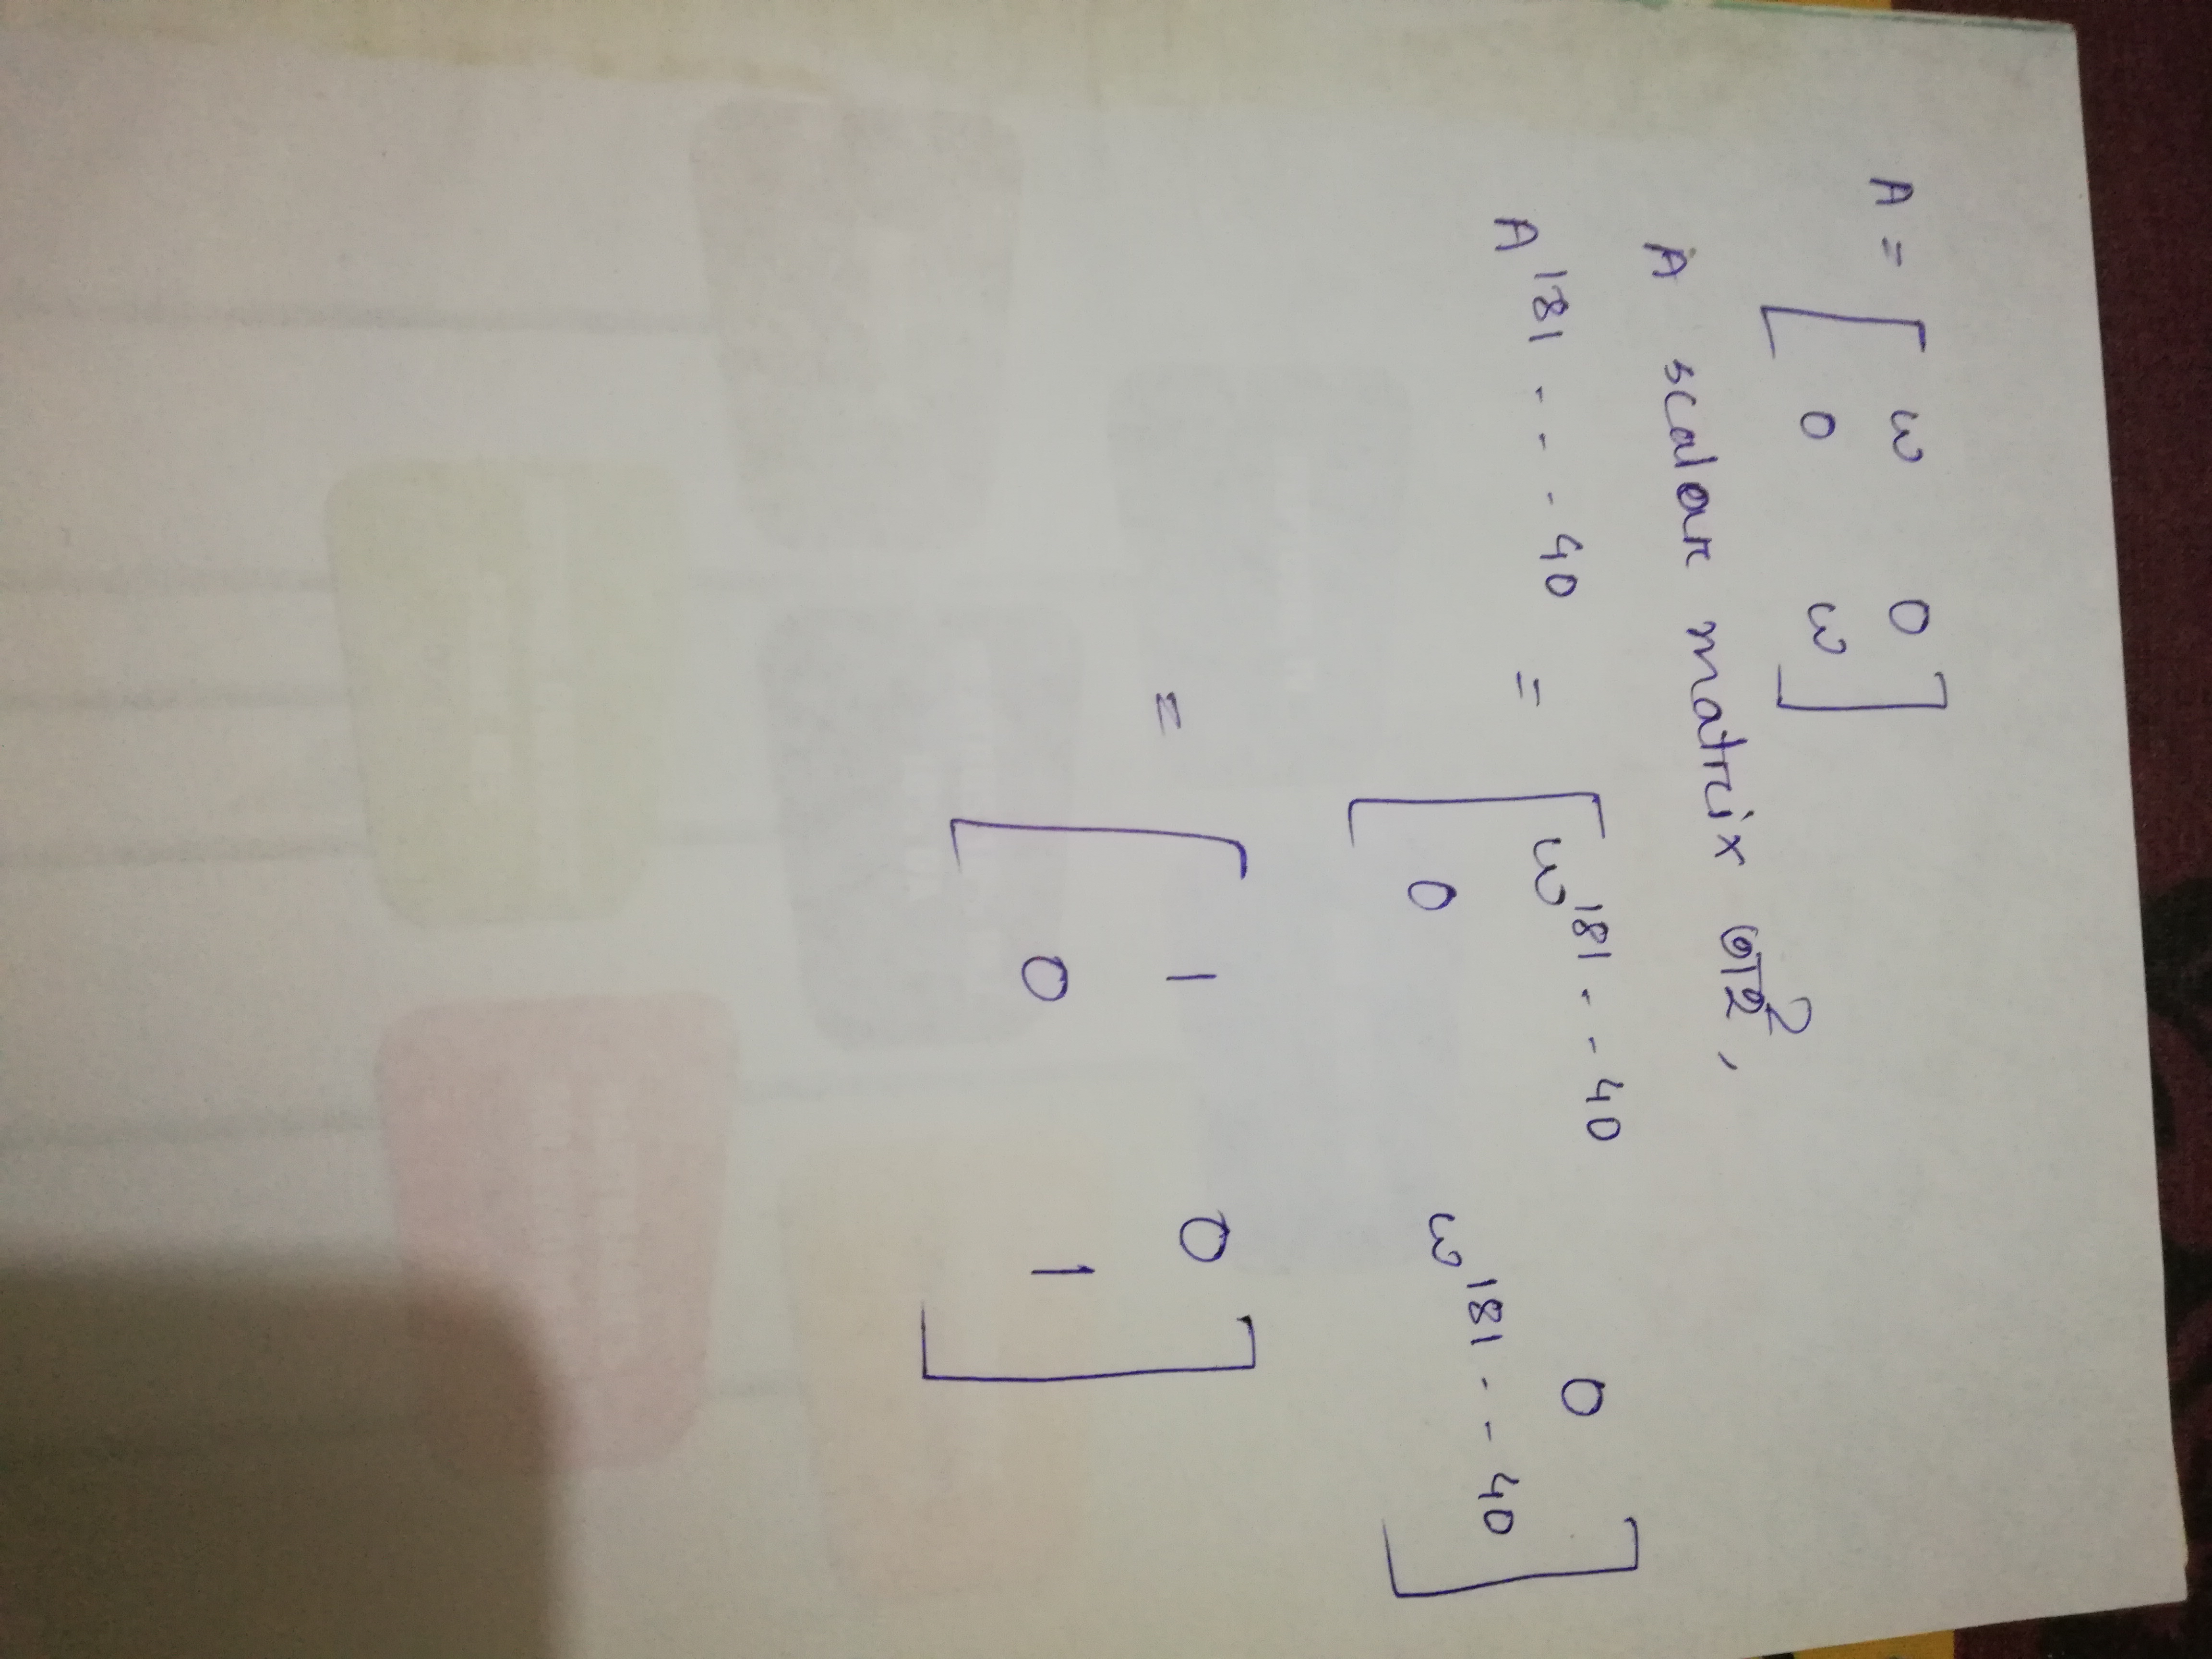 A = [ ω 0
0 ω ]
A scalar matrix তাই,
A¹⁸¹---⁴⁰ = [ ω¹⁸¹---⁴⁰ 0
0 ω¹⁸¹---⁴⁰ ]
= [ 1 0
0 1 ]